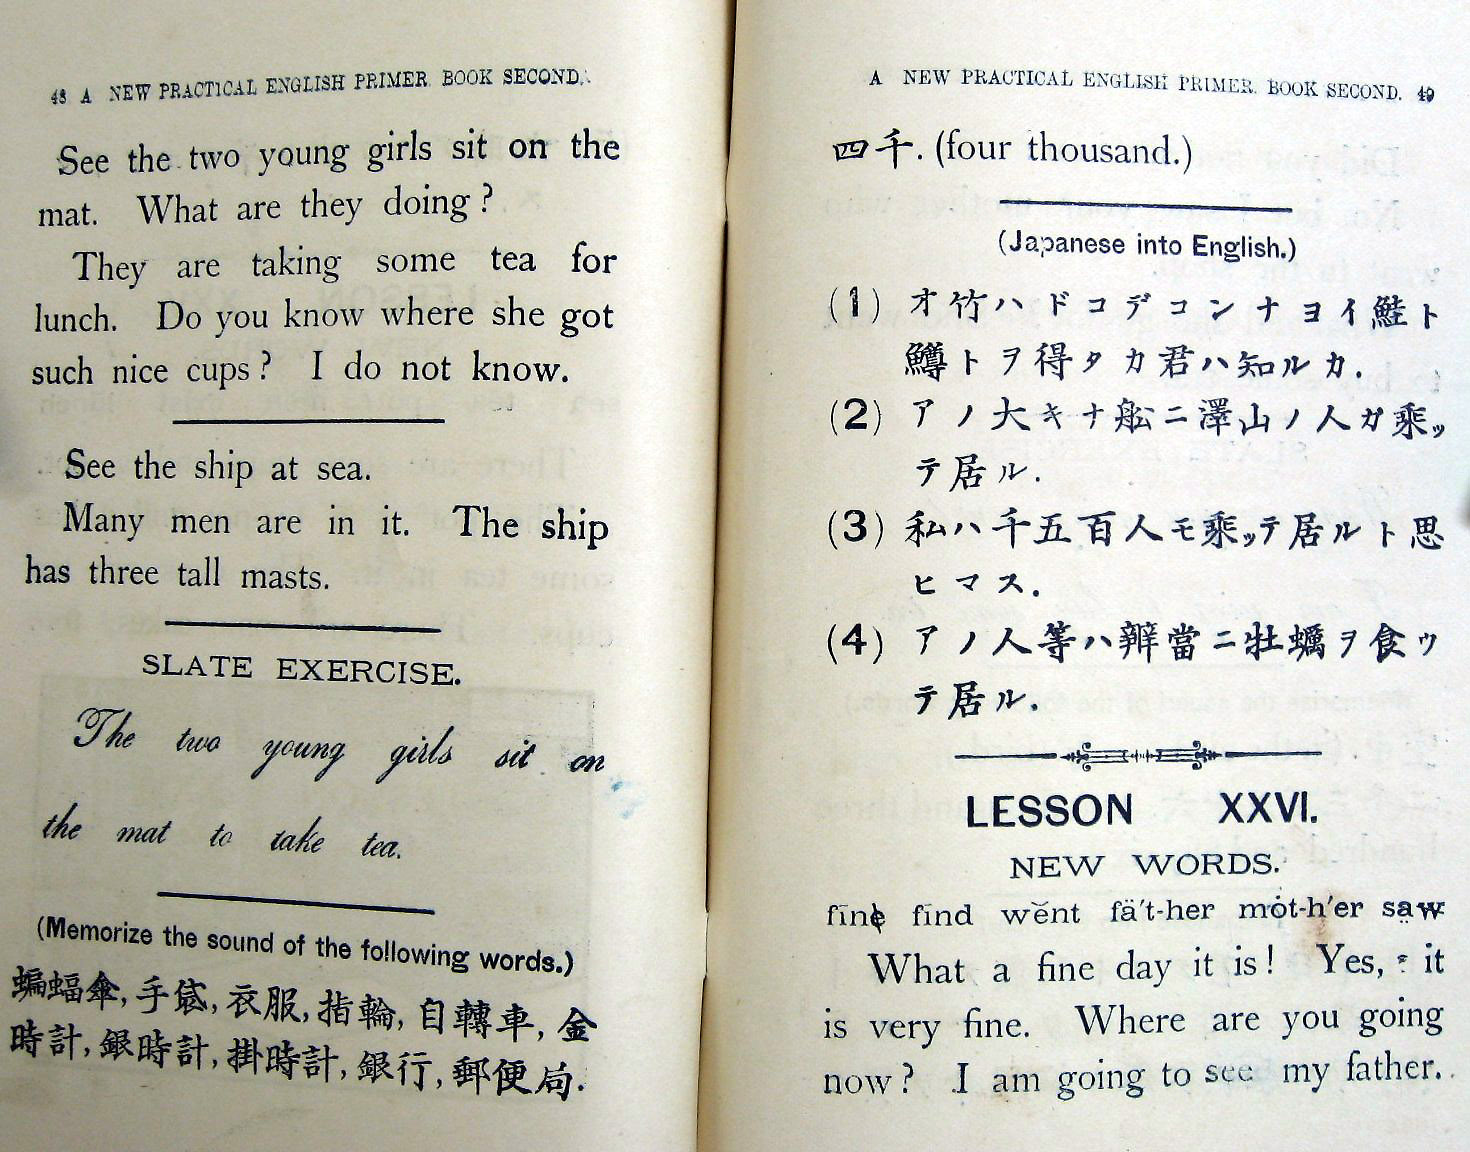 48 A NEW PRACTICAL ENGLISH PRIMER. BOOK SECOND.
See the two young girls sit on the
mat. What are they doing?
They are taking some tea for
lunch. Do you know where she got
such nice cups? I do not know.
See the ship at sea.
Many men are in it. The ship
has three tall masts.
SLATE EXERCISE.
The two young girls sit on
the mat to take tea.
(Memorize the sound of the following words.)
蝙蝠傘, 手袋, 衣服, 指輪, 自轉車, 金
時計, 銀時計, 掛時計, 銀行, 郵便局.
A NEW PRACTICAL ENGLISH PRIMER. BOOK SECOND. 49
四千. (four thousand.)
(Japanese into English.)
(1) オ竹ハドコデコンナヨイ鮭ト
鱒トヲ得タカ君ハ知ルカ.
(2) アノ大キナ舩ニ澤山ノ人ガ乘ッ
テ居ル.
(3) 私ハ千五百人モ乘ッテ居ルト思
ヒマス.
(4) アノ人等ハ辨當ニ牡蠣ヲ食ッ
テ居ル.
LESSON XXVI.
NEW WORDS.
fīne fīnd wĕnt fä't-her mȯt-h'er saw
What a fine day it is! Yes, it
is very fine. Where are you going
now? I am going to see my father.